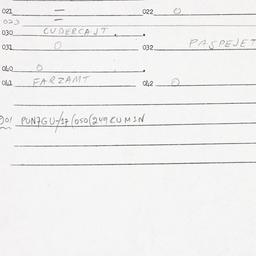 021 — 022 O
023 —
030 CUDERCAJT .
031 O 032 PASPEJET
040 O .
041 FARZAMT 042 O
001 PUN7GU-/17/050/249RUMIN